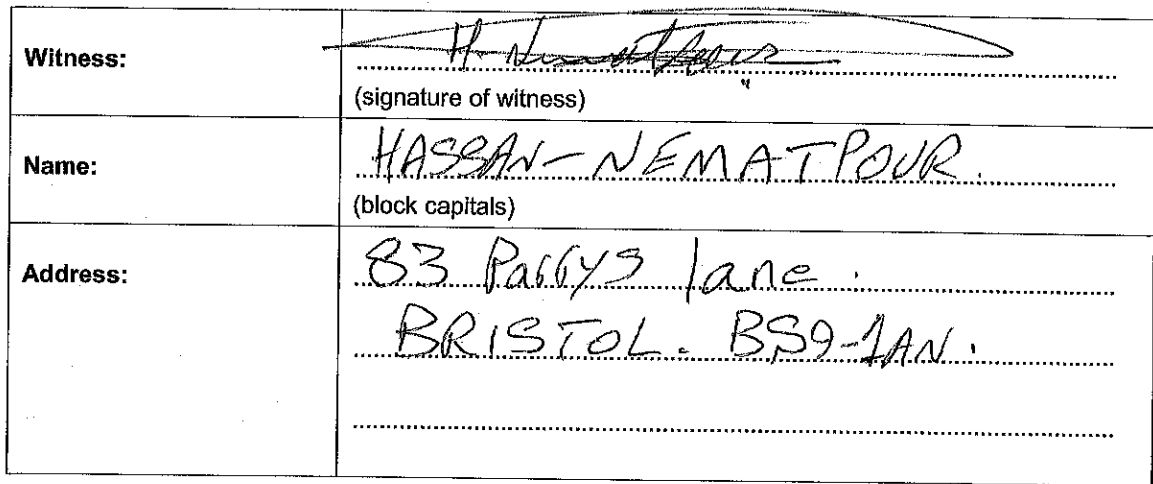 Witness: H. Nematpour
(signature of witness)
Name: HASSAN - NEMATPOUR.
(block capitals)
Address: 83 Parrys lane.
BRISTOL. BS9-1AN.